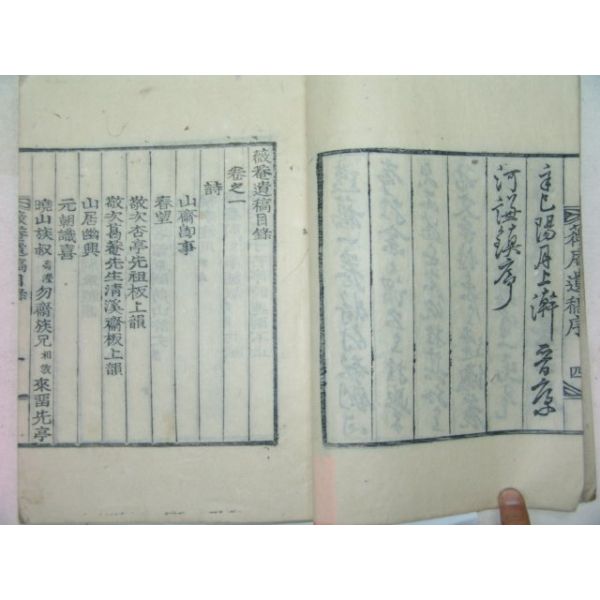 辛巳陽月上澣晉原
河謙鎭序
薇菴遺稿序 四
薇菴遺稿目錄
卷之一
詩
山齋卽事
春望
敬次杏亭先祖板上韻
敬次葛菴先生淸溪齋板上韻
山居幽興
元朝識喜
曉山族叔 勿齋族兄 相敦 來留先亭
薇菴遺稿目錄